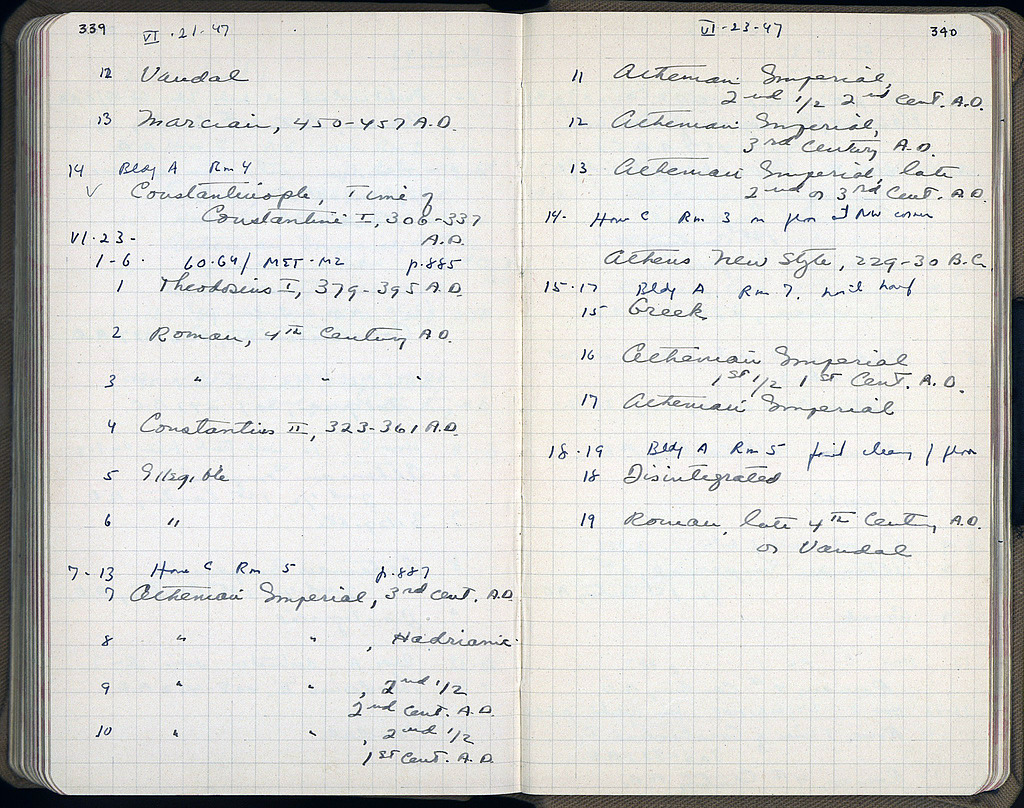 339
VI · 21 · 47
12 Vandal
13 Marcian, 450-457 A.D.
14 Bldg A Rm 4
V Constantinople, Time of
Constantine I, 306-337
A.D.
VI · 23 -
1-6. 60·64/ MET·M2 p.885
1 Theodosius I, 379-395 A.D.
2 Roman, 4th Century A.D.
3 " " "
4 Constantius II, 323-361 A.D.
5 Illegible
6 "
7-13 House C Rm 5 p.887
7 Athenian Imperial, 3rd Cent. A.D.
8 " " , Hadrianic
9 " " , 2nd 1/2
2nd Cent. A.D.
10 " " , 2nd 1/2
1st Cent. A.D.
VI-23-47
340
11 Athenian Imperial,
2nd 1/2 2nd Cent. A.D.
12 Athenian Imperial,
3rd Century A.D.
13 Athenian Imperial, late
2nd or 3rd Cent. A.D.
14. House C Rm 3 on floor at NW corner
Athens New Style, 229-30 B.C.
15-17 Bldg A Rm 7. half
15 Greek
16 Athenian Imperial
1st 1/2 1st Cent. A.D.
17 Athenian Imperial
18-19 Bldg A Rm 5 final floor
18 Disintegrated
19 Roman, late 4th Century A.D.
or Vandal